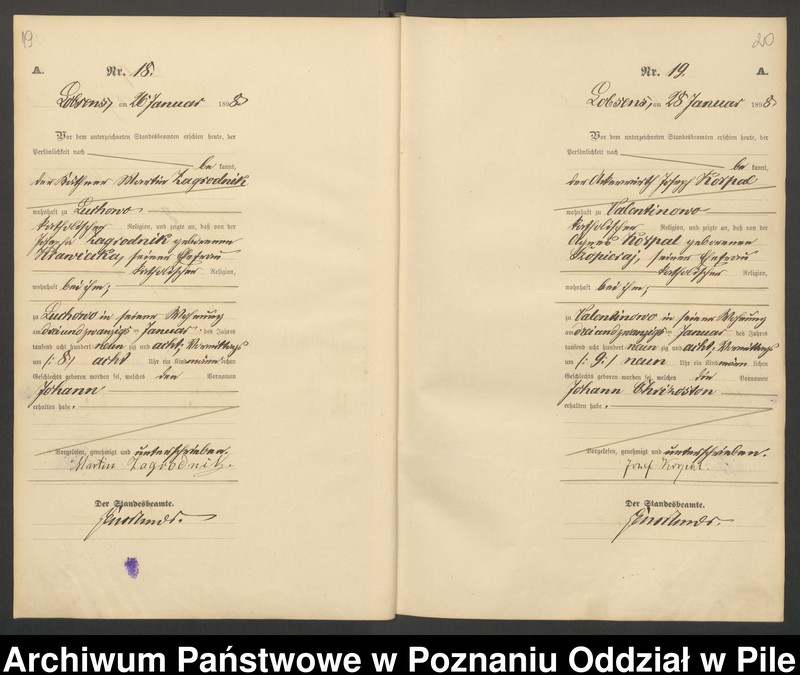 19
A.
Nr. 18.
Lobsens, am 26 Januar 1898
Vor dem unterzeichneten Standesbeamten erschien heute, der
Persönlichkeit nach
be kannt,
der Käthner Martin Zagrodnik
wohnhaft zu Luchowo
katholischer Religion, und zeigte an, daß von der
Josepha Zagrodnik geborenen
Krawiecka, seiner Ehefrau
katholischer Religion,
wohnhaft bei ihm,
zu Luchowo in seiner Wohnung
am drei und zwanzigsten Januar des Jahres
tausend acht hundert neun zig und acht, Vormittags
um (:8:) acht Uhr ein Kind männlichen
Geschlechts geboren worden sei, welches den Vornamen
Johann
erhalten habe.
Vorgelesen, genehmigt und unterschrieben.
Martin Zagrodnik.
Der Standesbeamte.
20
Nr. 19.
A.
Lobsens, am 28 Januar 1898
Vor dem unterzeichneten Standesbeamten erschien heute, der
Persönlichkeit nach
be kannt,
der Ackerwirth Joseph Korpal
wohnhaft zu Valentinowo
katholischer Religion, und zeigte an, daß von der
Agnes Korpal geborenen
seiner Ehefrau
katholischer Religion,
wohnhaft bei ihm,
zu Valentinowo in seiner Wohnung
am drei und zwanzigsten Januar des Jahres
tausend acht hundert neun zig und acht, Vormittags
um (:9:) neun Uhr ein Kind männlichen
Geschlechts geboren worden sei, welches die Vornamen
Johann Chrizoston
erhalten habe.
Vorgelesen, genehmigt und unterschrieben.
Josef Korpal.
Der Standesbeamte.
Archiwum Państwowe w Poznaniu Oddział w Pile